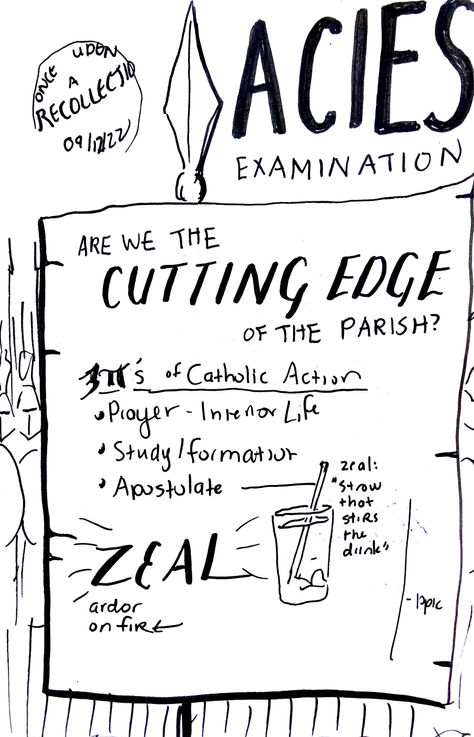 ONCE UPON
A
RECOLLECTIO
ACIES
EXAMINATION
ARE WE THE
CUTTING EDGE
OF THE PARISH?
3π's of Catholic Action
• Prayer - Interior Life
• Study/formation
• Apostulate
zeal:
"straw
that
stirs
the
drink"
ZEAL
ardor
on fire